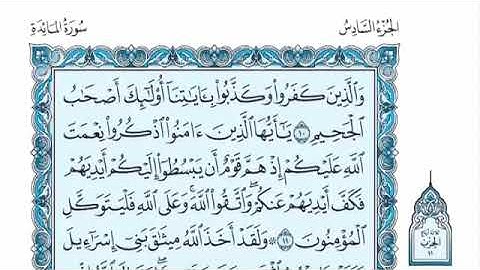 الجزء السادس
سورة المائدة
وَالَّذِينَ كَفَرُوا۟ وَكَذَّبُوا۟ بِـَٔايَٰتِنَآ أُو۟لَٰٓئِكَ أَصْحَٰبُ
ٱلْجَحِيمِ ١٠ يَٰٓأَيُّهَا ٱلَّذِينَ ءَامَنُوا۟ ٱذْكُرُوا۟ نِعْمَتَ
ٱللَّهِ عَلَيْكُمْ إِذْ هَمَّ قَوْمٌ أَن يَبْسُطُوٓا۟ إِلَيْكُمْ أَيْدِيَهُمْ
فَكَفَّ أَيْدِيَهُمْ عَنكُمْ ۖ وَٱتَّقُوا۟ ٱللَّهَ ۚ وَعَلَى ٱللَّهِ فَلْيَتَوَكَّلِ
ٱلْمُؤْمِنُونَ ١١ وَلَقَدْ أَخَذَ ٱللَّهُ مِيثَٰقَ بَنِىٓ إِسْرَٰٓءِيلَ
الحزب
١١